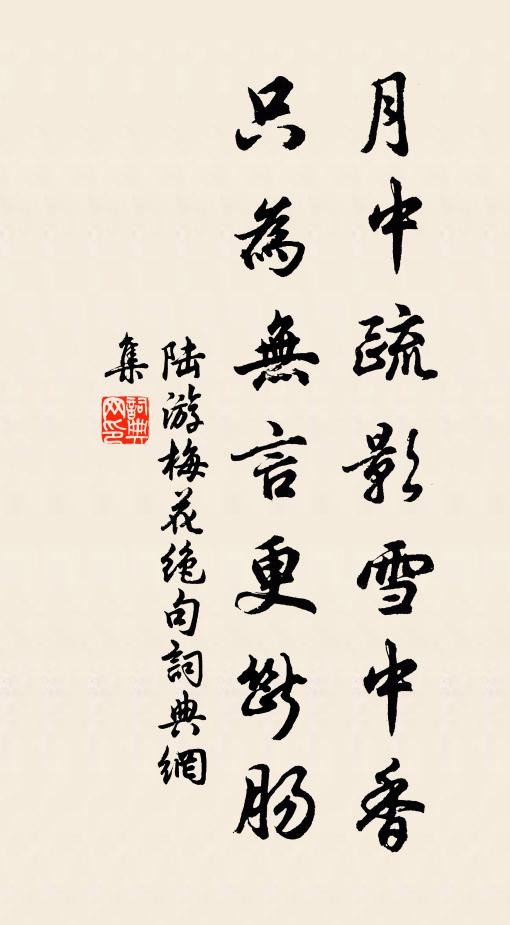 月中疏影雪中香
只為無言更斷腸
陆游梅花绝句詞典網
集
詞典
网印